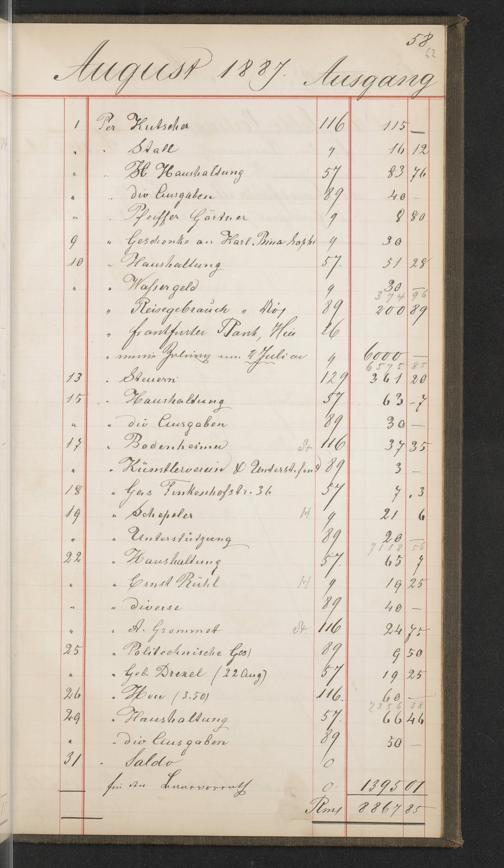 58
62
August 1887. Ausgang
1 Per Kutscher 116 115 —
" " Stall " 16 12
" " Haushaltung 57 83 76
" " div Ausgaben 89 40 -
" " Pfeiffer Gärtner " 8 80
9 " Geschenke an Karl " 30
10 " Haushaltung 57. 51 28
" " Wassergeld " 30 —
374 96
" Reisegebrauch " 89 200 89
" frankfurter Bank, 26
" 6000 —
6575 85
13 " Steuern 129 361 20
15 " Haushaltung 57 63 - 7
" " div Ausgaben 89 30 —
17 " Bodenheimer St 116 37 35
" " Künstlerverein & Unterst. fond 89 3 -
18 " Gas Finkenhofstr. 36 57 7 . 3
19 " Schepeler H " 21 6
" " Unterstützung 89 20 —
22 " Haushaltung 57. 65 7
" " Ernst Rühl H " 19 25
" " diverse 89 40 —
" " A. Grommet St 116 24 75
25 " Politechnische Ges 89 9 50
" " Geb Drexel (22 Aug) 57 19 25
26 " Heu (3.50) 116. 60 —
29 " Haushaltung 57. 66 46
" " div Ausgaben 89 50 —
31 " Saldo 0
für den 0. 1395 01
Rms 8867 85